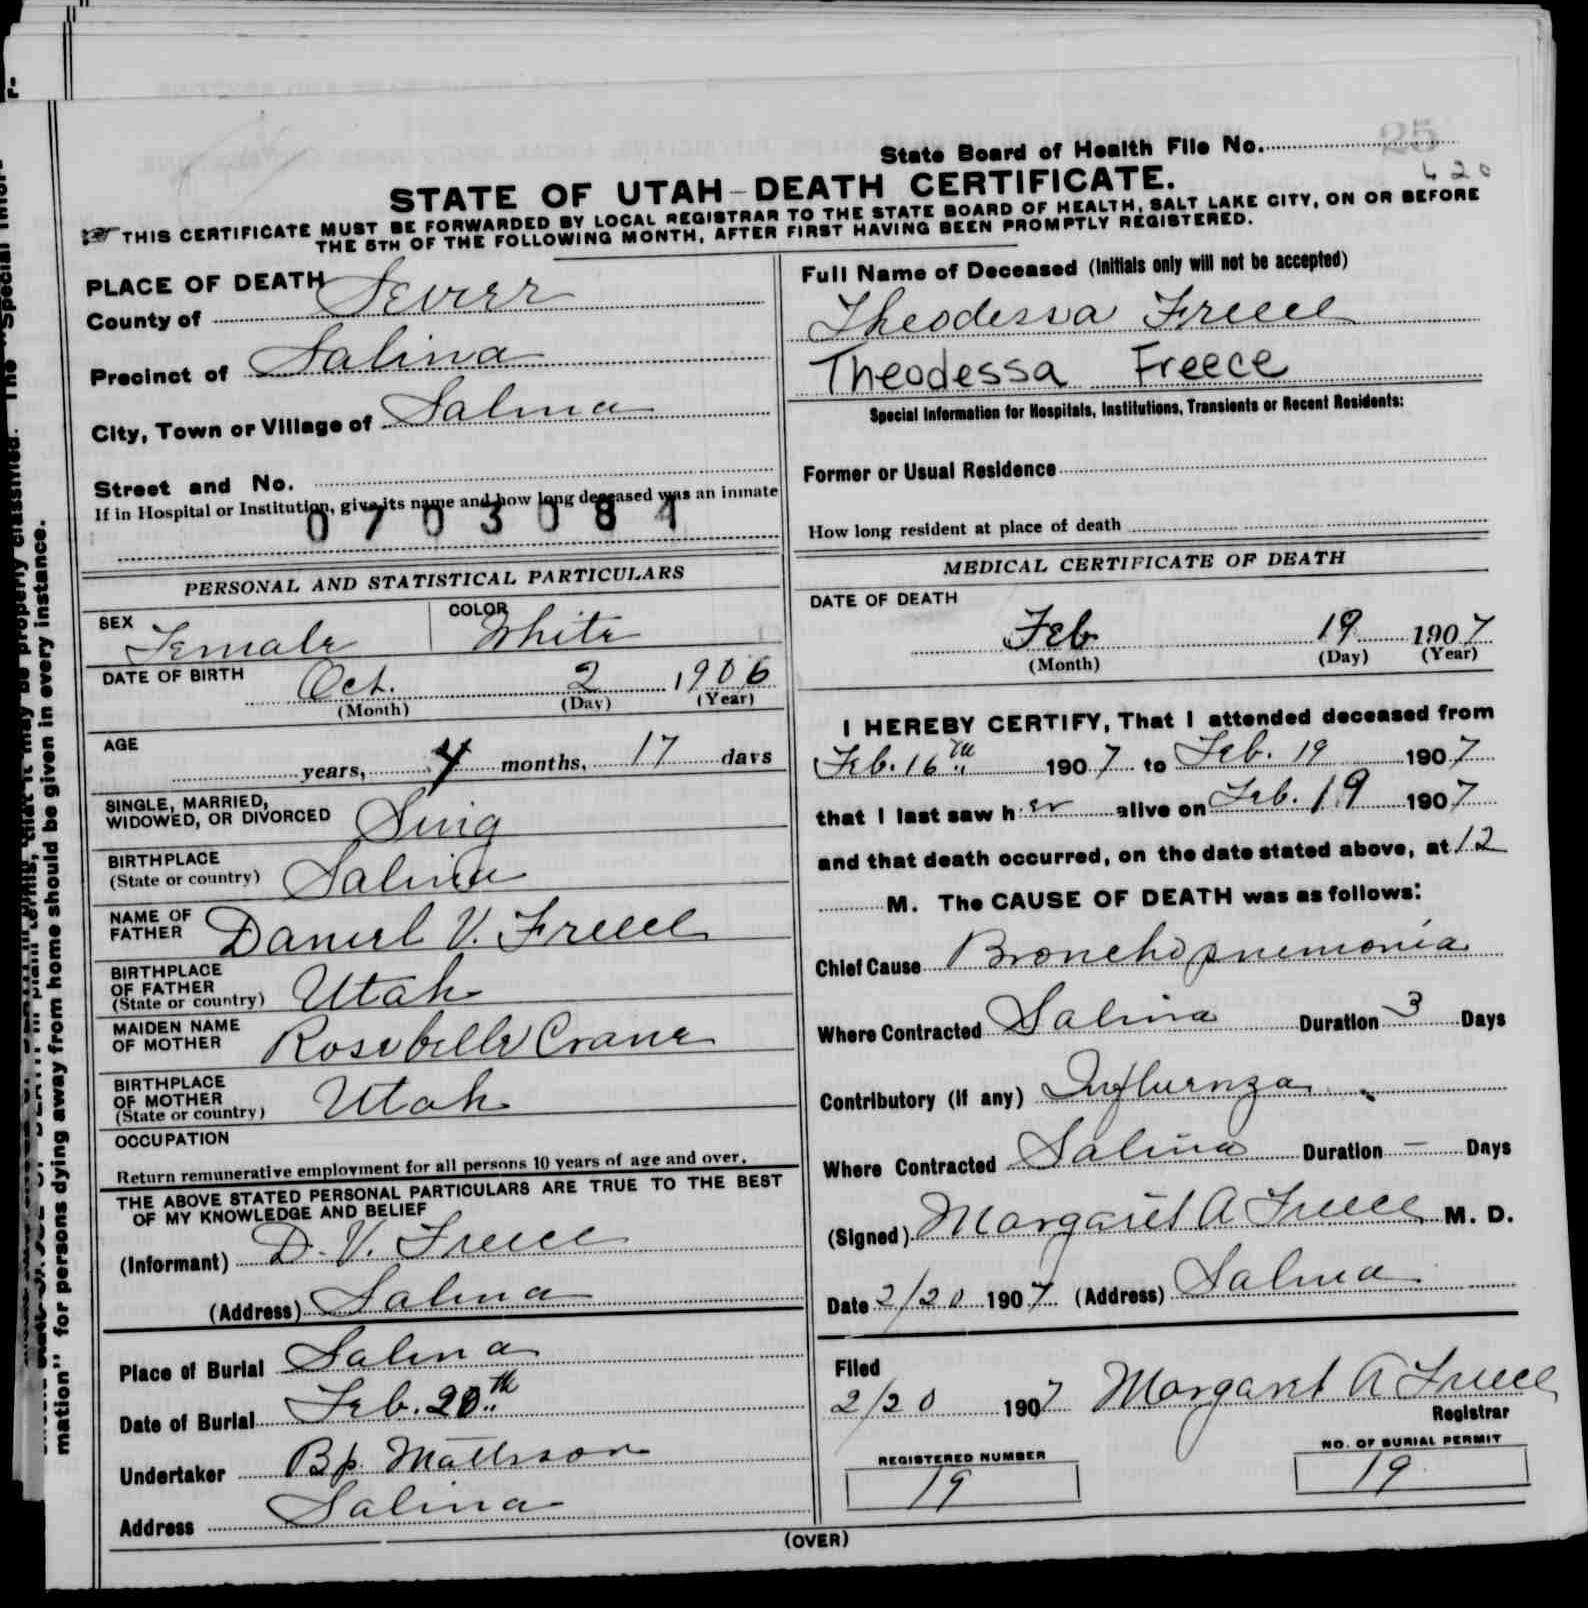 State Board of Health File No. 25
420
STATE OF UTAH—DEATH CERTIFICATE.
THIS CERTIFICATE MUST BE FORWARDED BY LOCAL REGISTRAR TO THE STATE BOARD OF HEALTH, SALT LAKE CITY, ON OR BEFORE
THE 5TH OF THE FOLLOWING MONTH, AFTER FIRST HAVING BEEN PROMPTLY REGISTERED.
PLACE OF DEATH
County of Sevier
Precinct of Salina
City, Town or Village of Salina
Street and No.
If in Hospital or Institution, give its name and how long deceased was an inmate
0703081
PERSONAL AND STATISTICAL PARTICULARS
SEX Female COLOR White
DATE OF BIRTH Oct. 2 1906
(Month) (Day) (Year)
AGE years, 4 months, 17 days
SINGLE, MARRIED,
WIDOWED, OR DIVORCED Sing
BIRTHPLACE
(State or country) Salina
NAME OF
FATHER Daniel V. Freece
BIRTHPLACE
OF FATHER
(State or country) Utah
MAIDEN NAME
OF MOTHER Rosebelle Crane
BIRTHPLACE
OF MOTHER
(State or country) Utah
OCCUPATION
Return remunerative employment for all persons 10 years of age and over.
THE ABOVE STATED PERSONAL PARTICULARS ARE TRUE TO THE BEST
OF MY KNOWLEDGE AND BELIEF
(Informant) D. V. Freece
(Address) Salina
Place of Burial Salina
Date of Burial Feb. 20th
Undertaker Bp. Mattsson
Address Salina
Full Name of Deceased (Initials only will not be accepted)
Theodessa Freece
Theodessa Freece
Special Information for Hospitals, Institutions, Transients or Recent Residents:
Former or Usual Residence
How long resident at place of death
MEDICAL CERTIFICATE OF DEATH
DATE OF DEATH
Feb 19 1907
(Month) (Day) (Year)
I HEREBY CERTIFY, That I attended deceased from
Feb. 16th 1907 to Feb. 19 1907
that I last saw her alive on Feb. 19 1907
and that death occurred, on the date stated above, at 12
M. The CAUSE OF DEATH was as follows:
Chief Cause Broncho pnemonia
Where Contracted Salina Duration 3 Days
Contributory (If any) Influenza
Where Contracted Salina Duration — Days
(Signed) Margaret A Freece M. D.
Date 2/20 1907 (Address) Salina
Filed
2/20 1907 Margaret A Freece
Registrar
REGISTERED NUMBER
19
NO. OF BURIAL PERMIT
19
(OVER)
mation" for persons dying away from home should be given in every instance.